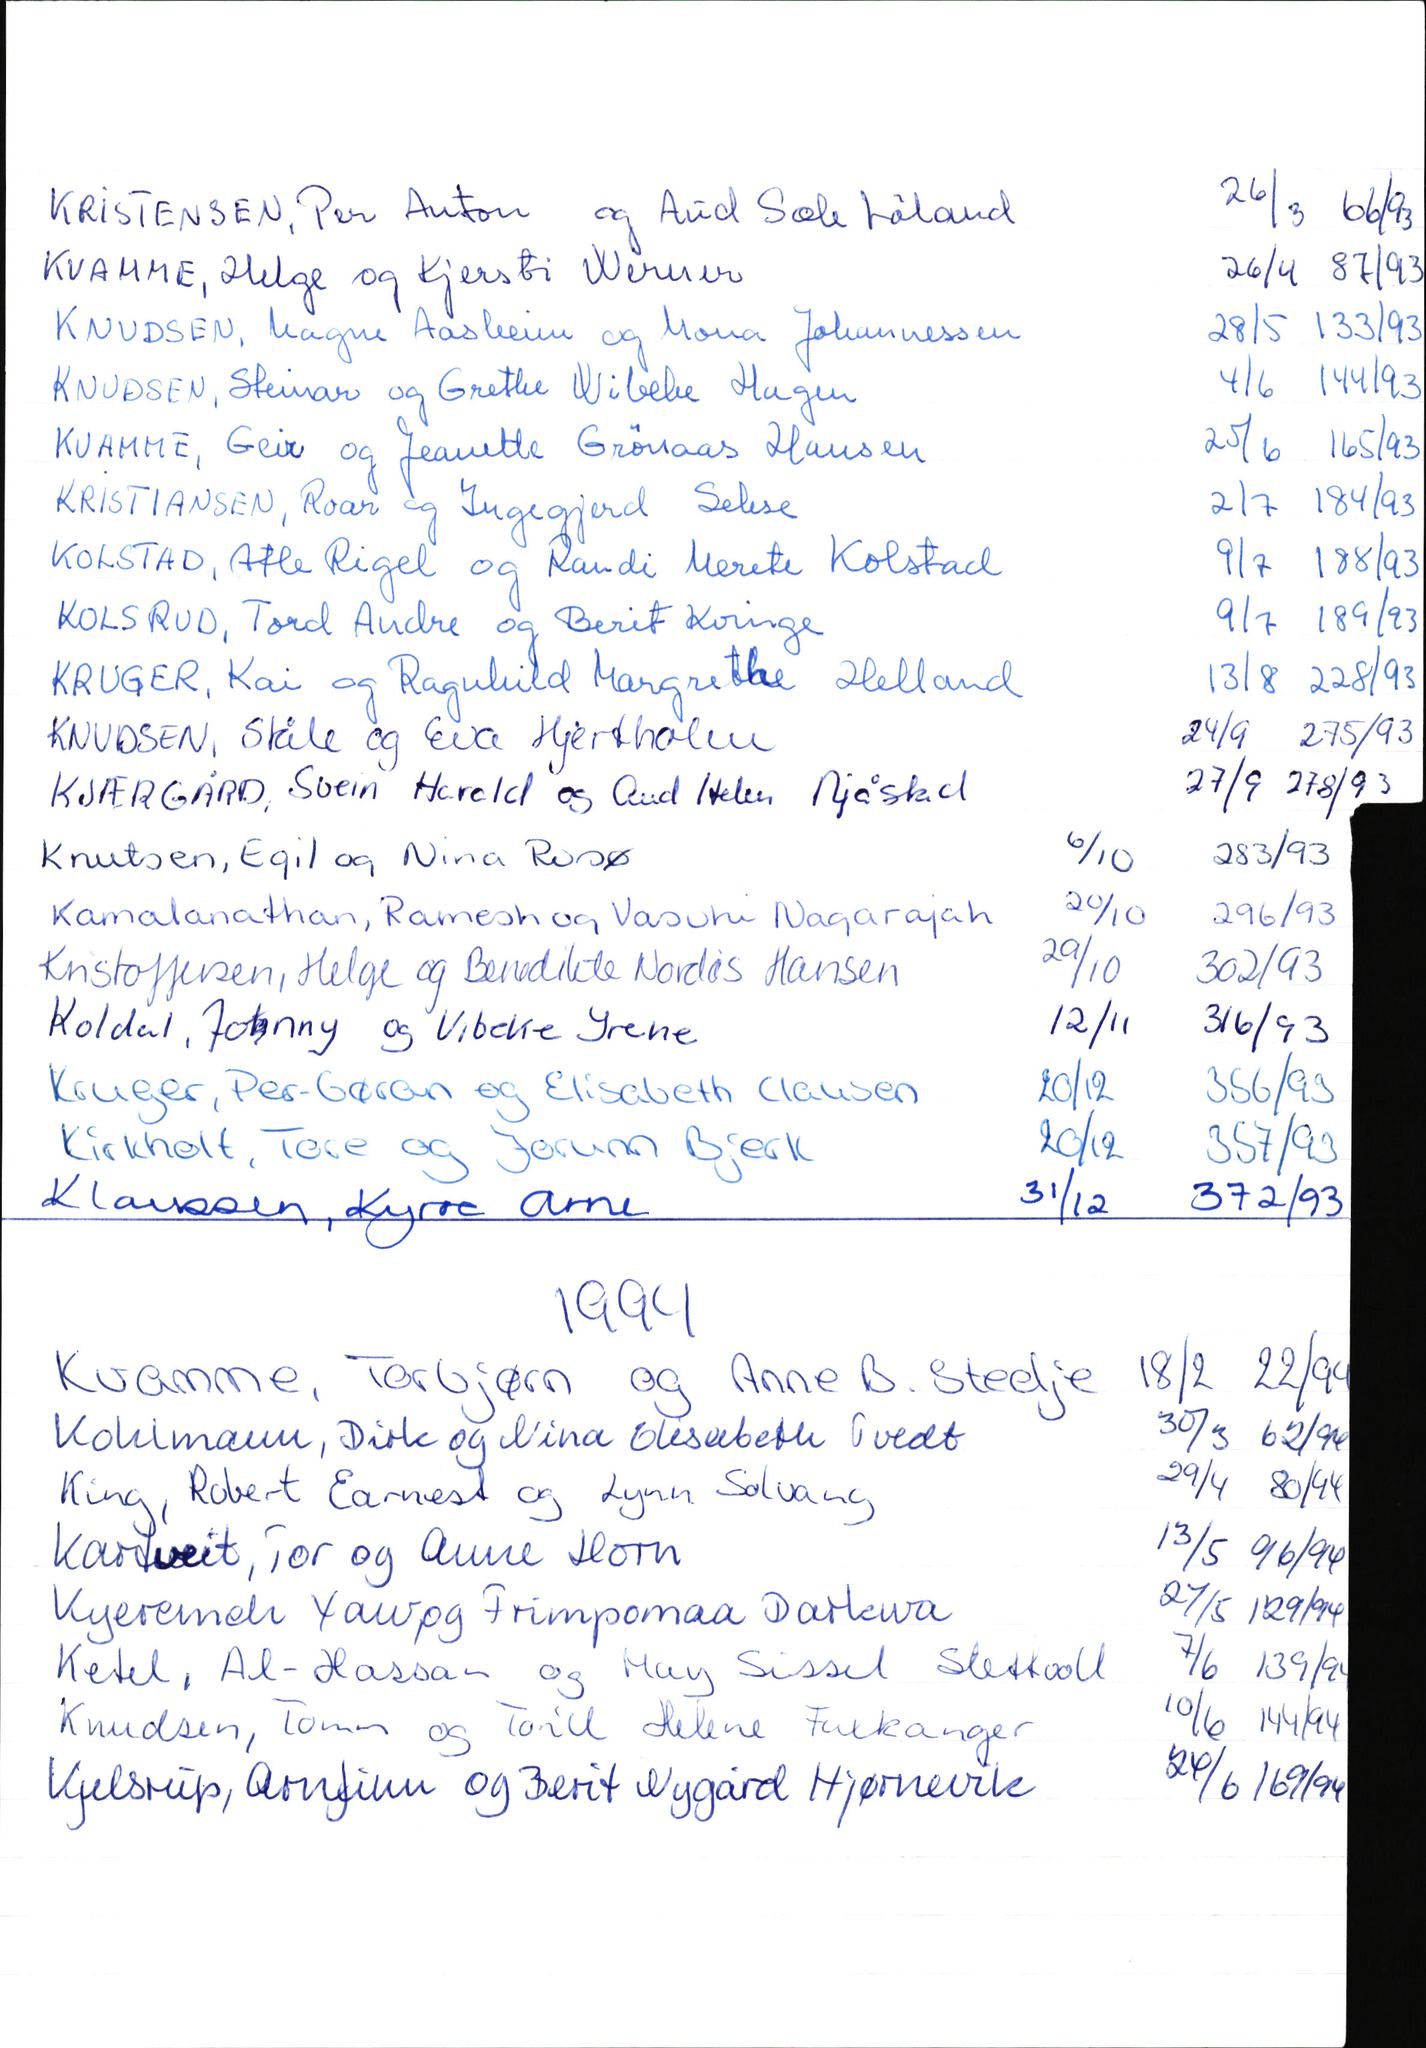 KRISTENSEN, Per Anton og Aud Sæle Løland 26/3 66/93
KVAMME, Helge og Kjersti Werner 26/4 87/93
KNUDSEN, Magne Aasheim og Mona Johannessen 28/5 133/93
KNUDSEN, Steinar og Grethe Wibeke Hagen 4/6 144/93
KVAMME, Geir og Jeanette Grönaas Hansen 25/6 165/93
KRISTIANSEN, Roar og Ingegjerd Sekse 2/7 184/93
KOLSTAD, Atle Rigel og Randi Merete Kolstad 9/7 188/93
KOLSRUD, Tord Andre og Berit Kvinge 9/7 189/93
KRUGER, Kai og Ragnhild Margrethe Helland 13/8 228/93
KNUDSEN, Ståle og Eva Hjertholm 24/9 275/93
KJÆRGÅRD, Svein Harald og Aud Helen Njåstad 27/9 278/93
Knutsen, Egil og Nina Rosø 6/10 283/93
Kamalanathan, Ramesh og Vasuhi Nagarajah 20/10 296/93
Kristoffersen, Helge og Benedikte Nordås Hansen 29/10 302/93
Koldal, Johnny og Vibeke Irene 12/11 316/93
Kruger, Per-Gøran og Elisabeth Clausen 20/12 356/93
Kirkholt, Tore og Jorunn Bjerk 20/12 357/93
Klaussen, Kyrre Arne 31/12 372/93
1994
Kvamme, Torbjørn og Anne B. Stedje 18/2 22/94
Kohlmann, Dirk og Nina Elisabeth Tvedt 30/3 62/94
King, Robert Earnest og Lynn Solvang 29/4 80/94
Kartveit, Tor og Anne Horn 13/5 96/94
Kyeremeh Yaw og Frimpomaa Darkwa 27/5 129/94
Ketel, Al-Hassan og May Sissel Slettvoll 7/6 139/94
Knudsen, Tomm og Torill Helene Fuekanger 10/6 144/94
Kjelsrup, Arnfinn og Berit Nygård Hjørnevik 24/6 169/94